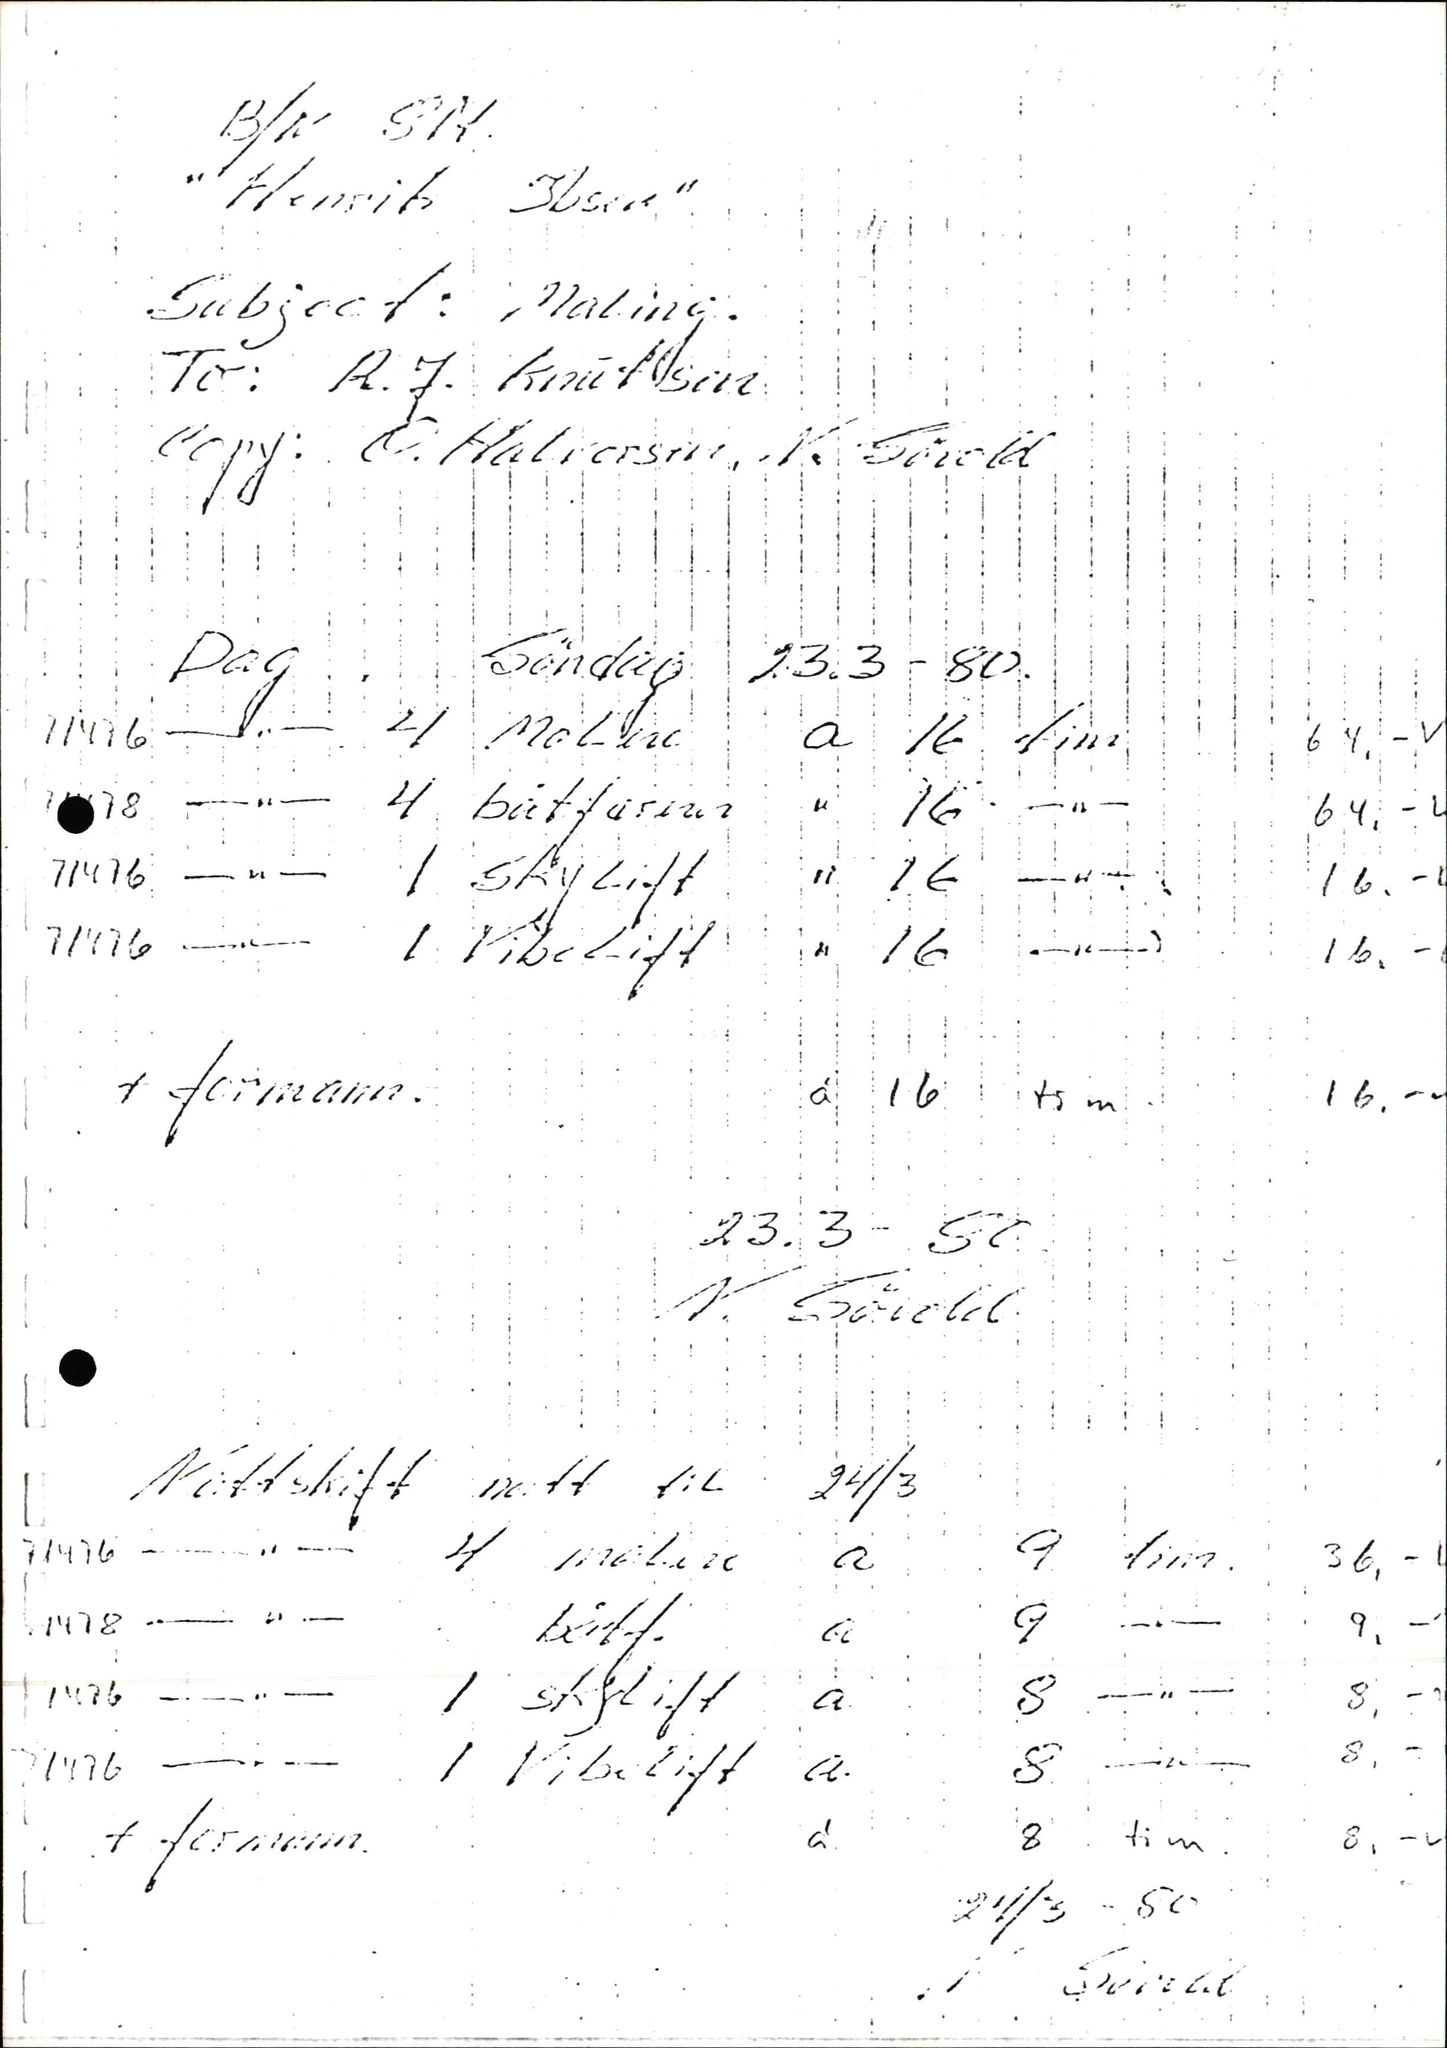 B/N SH.
"Henrik Ibsen"
Subject: Maling.
To: R.J. Knutsson
Copy: O. Halvorsen, N. Sörold
Dag . Söndag 23.3-80.
71476 —"— 4 Malere a 16 tim 64,-
71478 —"— 4 båtførere " 16 —"— 64,-
71476 —"— 1 Skylift " 16 —"— 16,-
71476 —"— 1 Vibolift " 16 —"— 16,-
+ formann. á 16 tim. 16,-
23.3-80
N. Sörold
Nattskift natt til 24/3
71476 —"— 4 malere a 9 tim. 36,-
1478 —"— båtf. a 9 —"— 9,-
1476 —"— 1 skylift a 8 —"— 8,-
71476 —"— 1 Vibolift a 8 —"— 8,-
+ formann. á 8 tim. 8,-
24/3-80
N Sörold